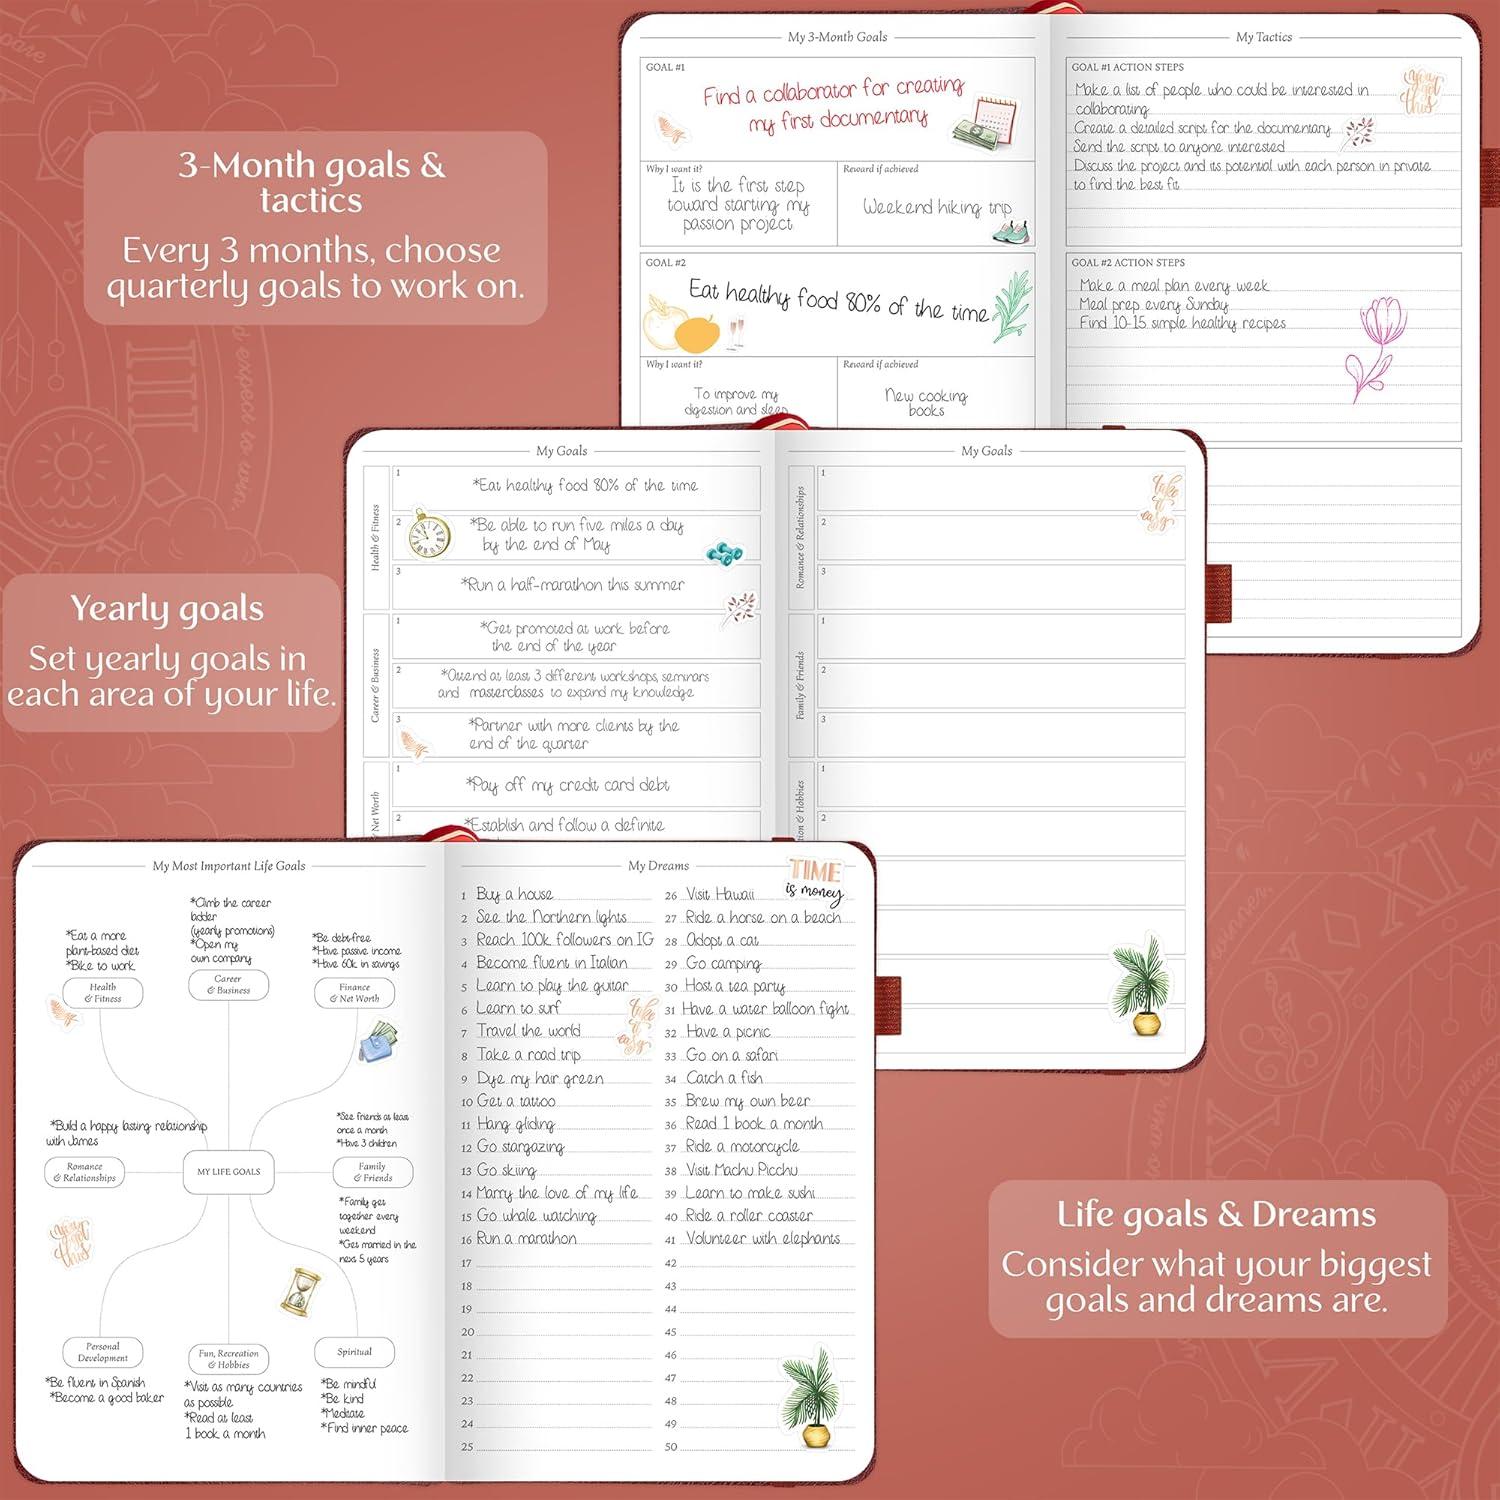 3-Month goals &
tactics
Every 3 months, choose
quarterly goals to work on.
My 3-Month Goals
GOAL #1
Find a collaborator for creating
my first documentary
Why I want it?
It is the first step
toward starting my
passion project
Reward if achieved
Weekend hiking trip
GOAL #2
Eat healthy food 80% of the time
Why I want it?
To improve my
digestion and sleep
Reward if achieved
New cooking
books
My Tactics
GOAL #1 ACTION STEPS
you've
got
this
Make a list of people who could be interested in
collaborating
Create a detailed script for the documentary
Send the script to anyone interested
Discuss the project and its potential with each person in private
to find the best fit
GOAL #2 ACTION STEPS
Make a meal plan every week
Meal prep every Sunday
Find 10-15 simple healthy recipes
Yearly goals
Set yearly goals in
each area of your life.
My Goals
Health & Fitness
1 *Eat healthy food 80% of the time
2 *Be able to run five miles a day
by the end of May
3 *Run a half-marathon this summer
Career & Business
1 *Get promoted at work before
the end of the year
2 *Attend at least 3 different workshops, seminars
and masterclasses to expand my knowledge
3 *Partner with more clients by the
end of the quarter
Net Worth
1 *Pay off my credit card debt
2 *Establish and follow a definite
My Goals
take
it
easy
Romance & Relationships
1
2
3
Family & Friends
1
2
3
tion & Hobbies
1
2
My Most Important Life Goals
*Eat a more
plant-based diet
*Bike to work
Health
& Fitness
*Climb the career
ladder
(yearly promotions)
*Open my
own company
Career
& Business
*Be debt-free
*Have passive income
*Have 60k in savings
Finance
& Net Worth
*Build a happy lasting relationship
with James
Romance
& Relationships
MY LIFE GOALS
*See friends at least
once a month
*Have 3 children
Family
& Friends
*Family get
together every
weekend
*Get married in the
next 5 years
you've
got
this
Personal
Development
*Be fluent in Spanish
*Become a good baker
Fun, Recreation
& Hobbies
*Visit as many countries
as possible
*Read at least
1 book a month
Spiritual
*Be mindful
*Be kind
*Meditate
*Find inner peace
My Dreams
TIME
is money
1 Buy a house
2 See the Northern lights
3 Reach 100k followers on IG
4 Become fluent in Italian
5 Learn to play the guitar
6 Learn to surf
7 Travel the world
8 Take a road trip
take
it
easy
9 Dye my hair green
10 Get a tattoo
11 Hang gliding
12 Go stargazing
13 Go skiing
14 Marry the love of my life
15 Go whale watching
16 Run a marathon
17
18
19
20
21
22
23
24
25
26 Visit Hawaii
27 Ride a horse on a beach
28 Adopt a cat
29 Go camping
30 Host a tea party
31 Have a water balloon fight
32 Have a picnic
33 Go on a safari
34 Catch a fish
35 Brew my own beer
36 Read 1 book a month
37 Ride a motorcycle
38 Visit Machu Picchu
39 Learn to make sushi
40 Ride a roller coaster
41 Volunteer with elephants
42
43
44
45
46
47
48
49
50
Life goals & Dreams
Consider what your biggest
goals and dreams are.